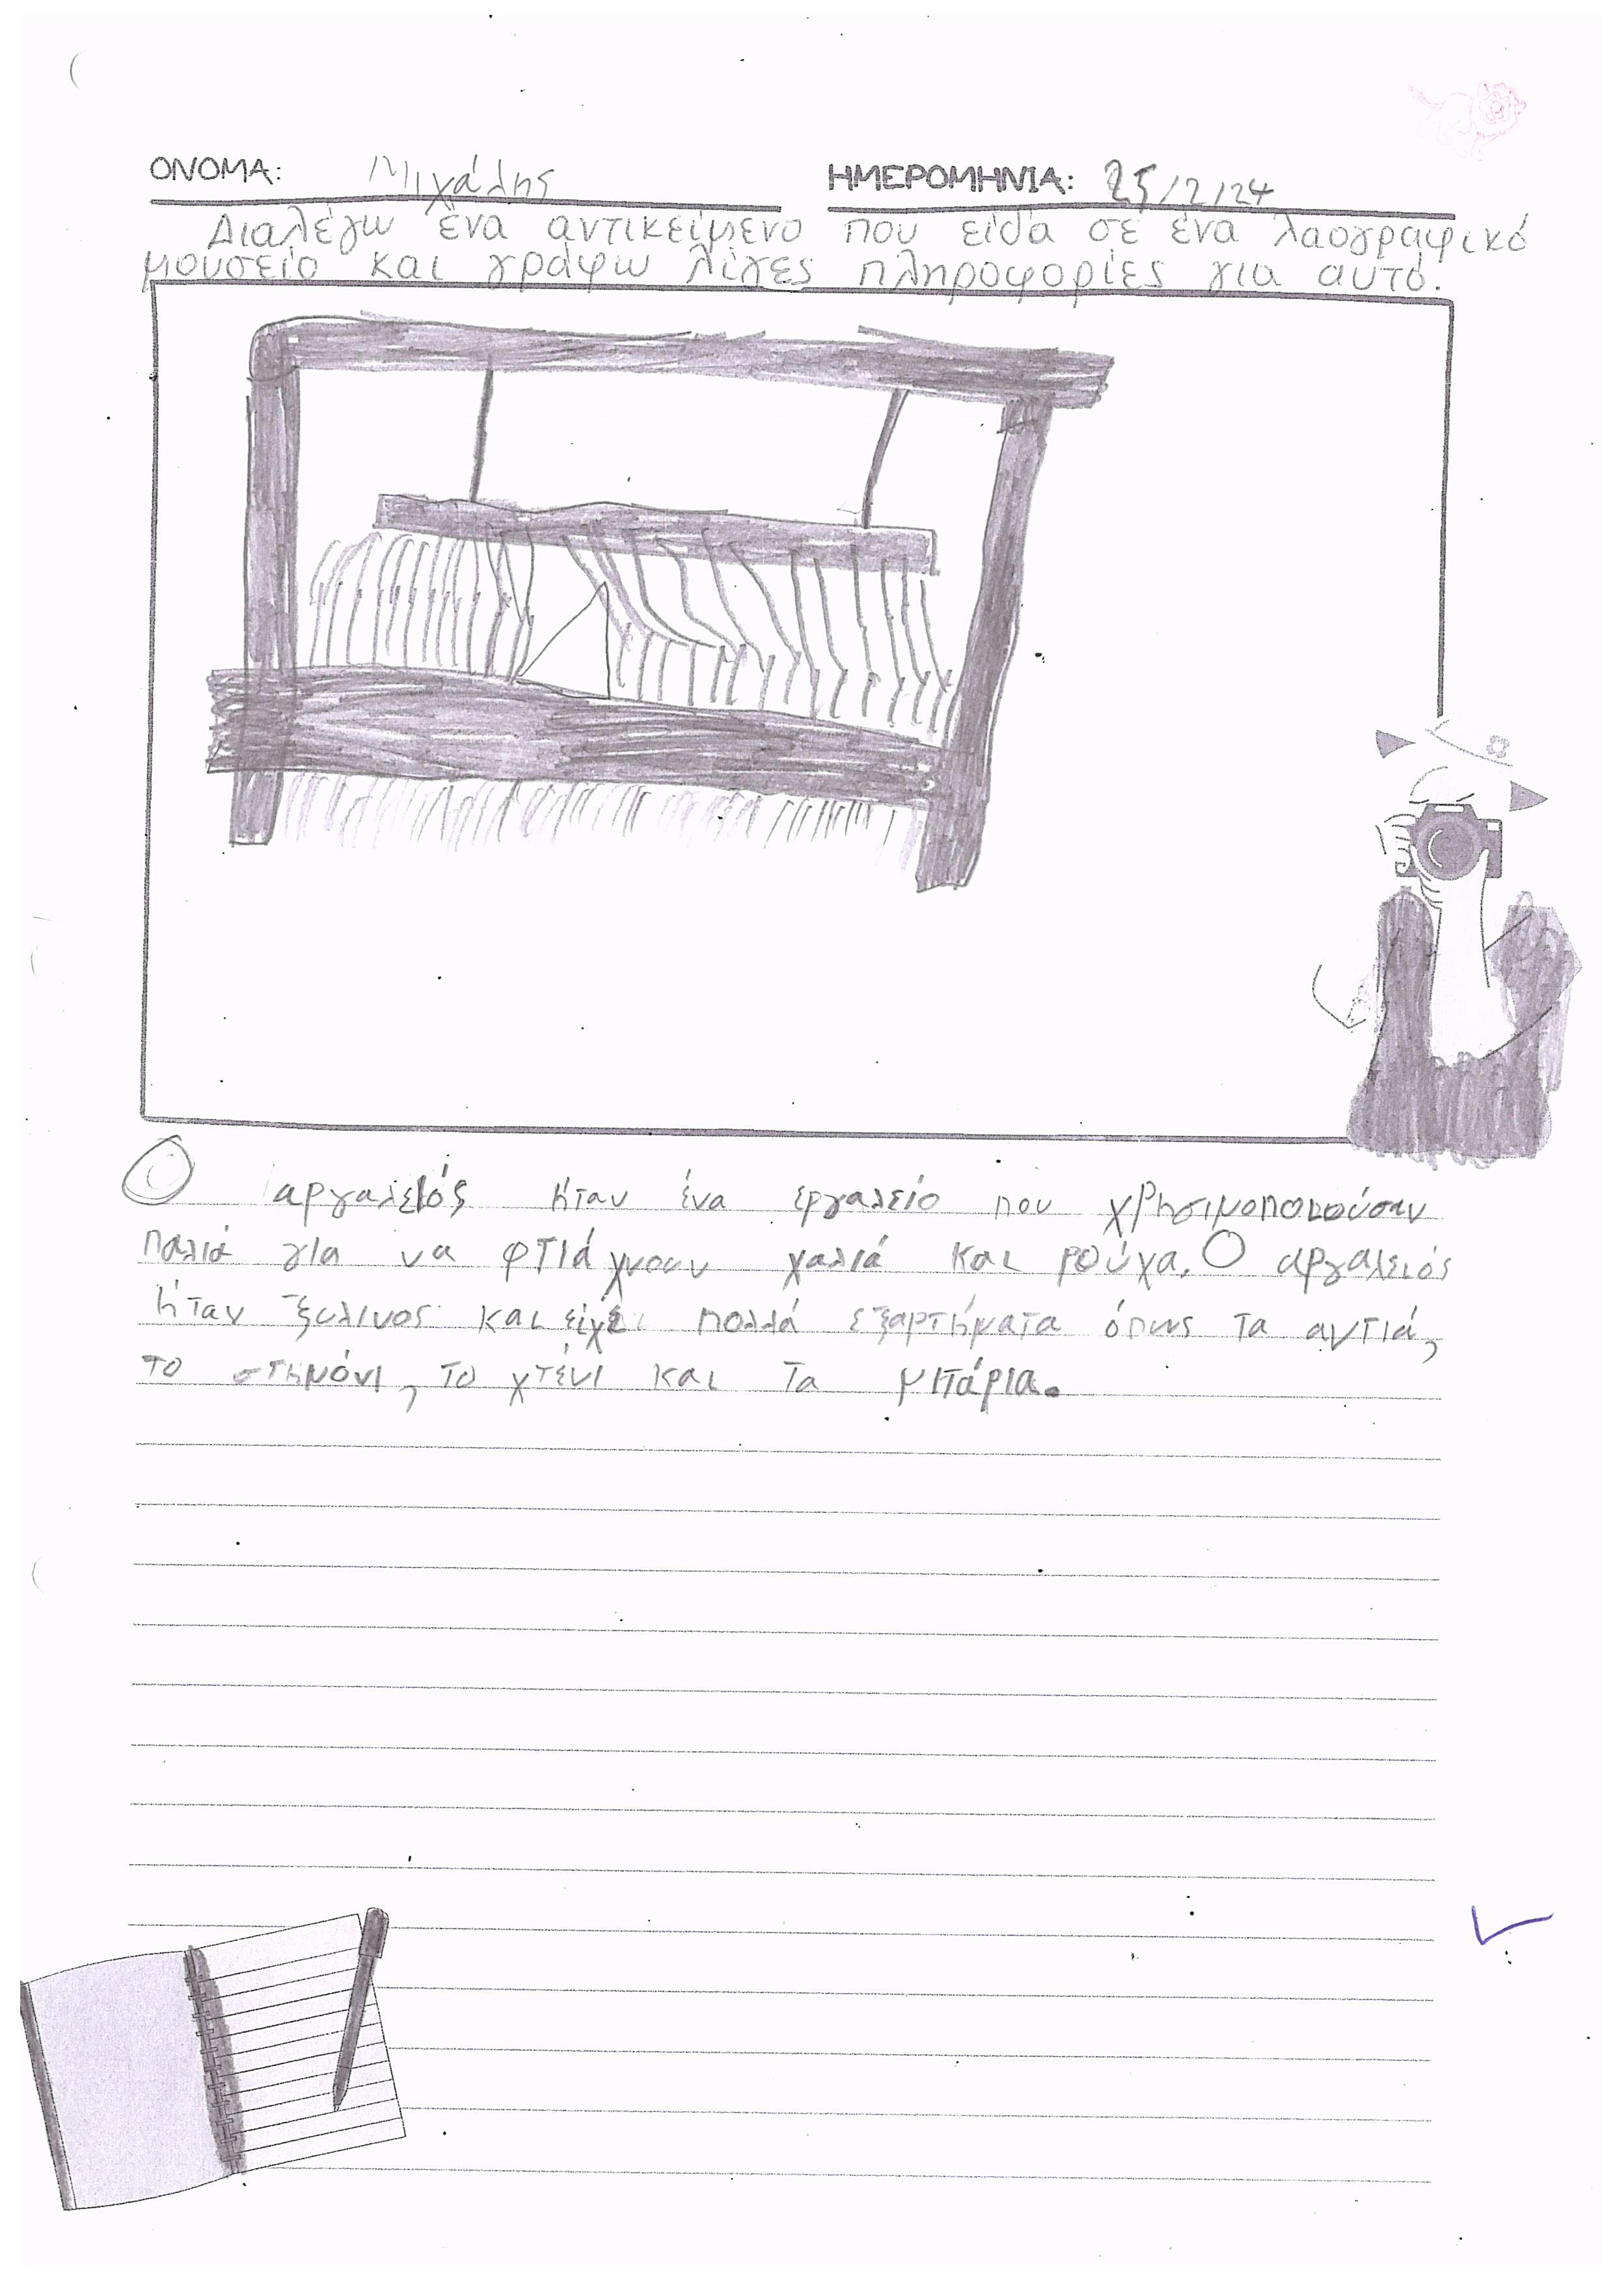 ΟΝΟΜΑ: Μιχάλης ΗΜΕΡΟΜΗΝΙΑ: 25/2/24
Διαλέγω ένα αντικείμενο που είδα σε ένα λαογραφικό
μουσείο και γράφω λίγες πληροφορίες για αυτό.
Ο αργαλειός ήταν ένα εργαλείο που χρησιμοποιούσαν
παλιά για να φτιάχνουν χαλιά και ρούχα. Ο αργαλειός
ήταν ξύλινος και είχε πολλά εξαρτήματα όπως τα αντιά,
το στημόνι, το χτένι και τα μιτάρια.